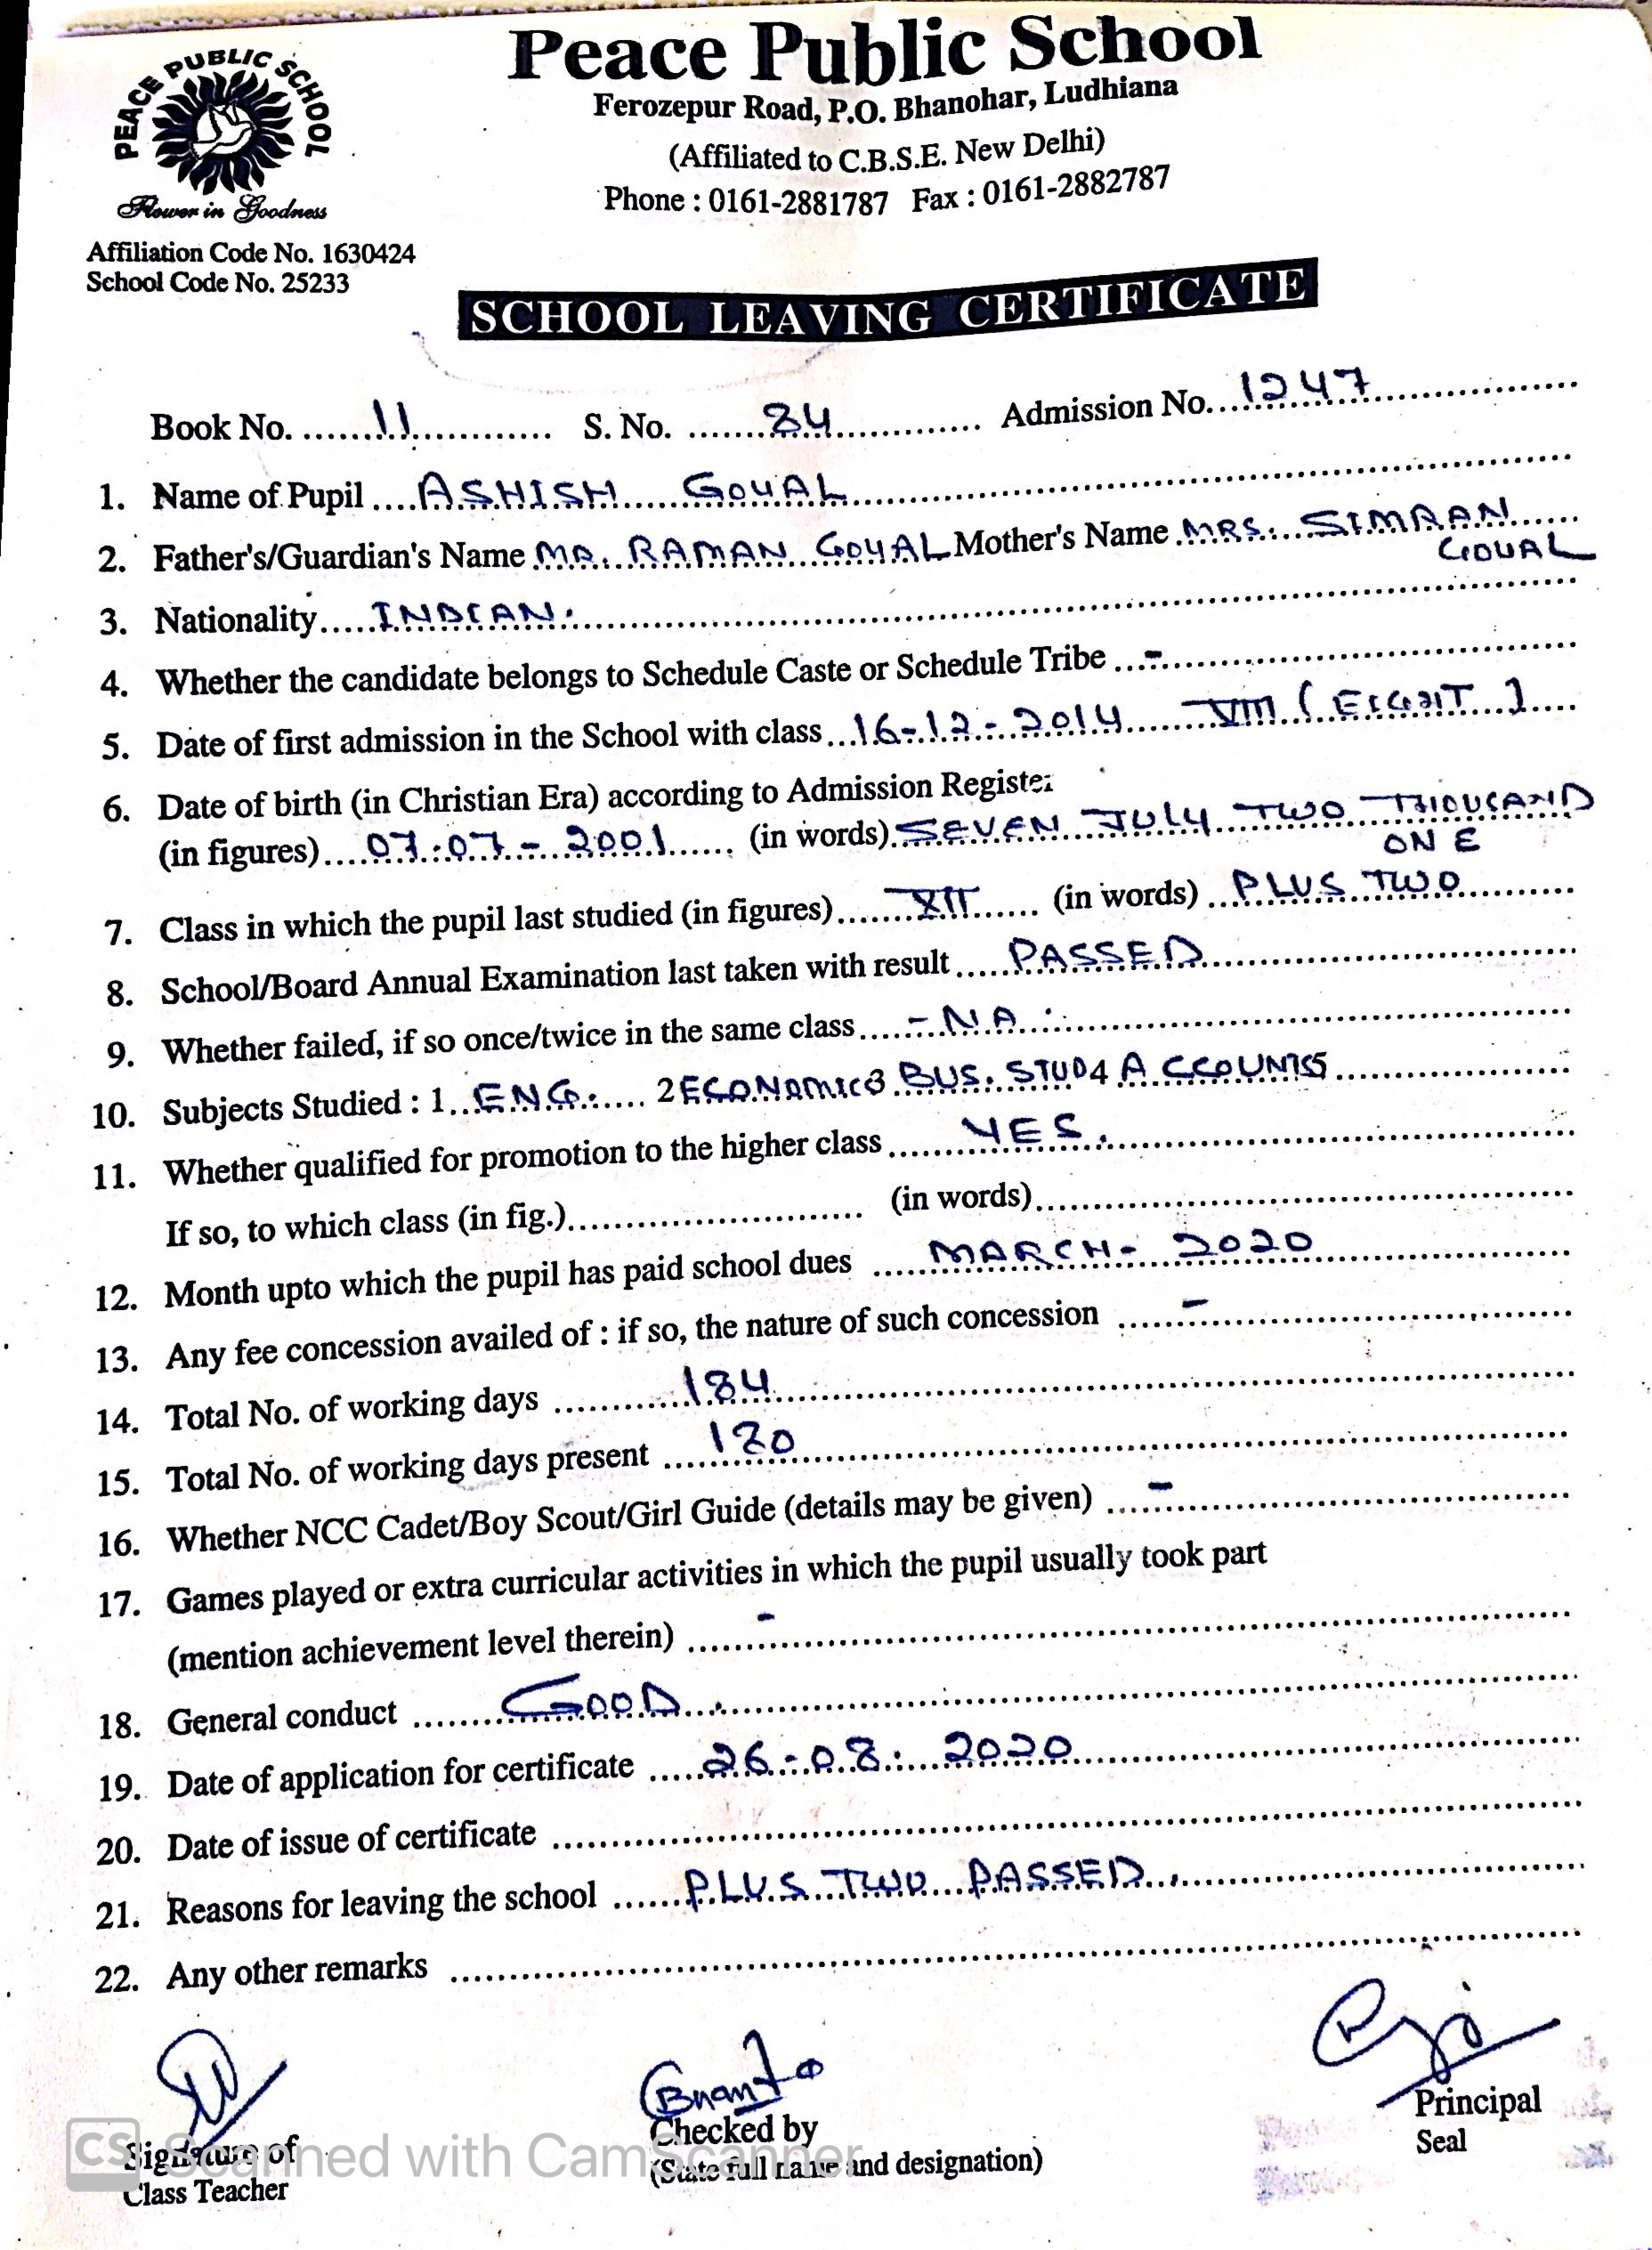 PEACE PUBLIC SCHOOL
Flower in Goodness
Affiliation Code No. 1630424
School Code No. 25233
Peace Public School
Ferozepur Road, P.O. Bhanohar, Ludhiana
(Affiliated to C.B.S.E. New Delhi)
Phone : 0161-2881787 Fax : 0161-2882787
SCHOOL LEAVING CERTIFICATE
Book No. 11 S. No. 84 Admission No. 1247
1. Name of Pupil ASHISH GOYAL
2. Father's/Guardian's Name MR. RAMAN GOYAL Mother's Name MRS. SIMRAN
GOYAL
3. Nationality INDIAN.
4. Whether the candidate belongs to Schedule Caste or Schedule Tribe -
5. Date of first admission in the School with class 16-12-2014 VIII (EIGHT)
6. Date of birth (in Christian Era) according to Admission Register
(in figures) 07-07-2001 (in words) SEVEN JULY TWO THOUSAND
ONE
7. Class in which the pupil last studied (in figures) XII (in words) PLUS TWO
8. School/Board Annual Examination last taken with result PASSED
9. Whether failed, if so once/twice in the same class - NA
10. Subjects Studied : 1 ENG. 2 ECONOMIC 3 BUS. STUD 4 ACCOUNTS 5
11. Whether qualified for promotion to the higher class YES.
If so, to which class (in fig.) (in words)
12. Month upto which the pupil has paid school dues MARCH- 2020
13. Any fee concession availed of : if so, the nature of such concession -
14. Total No. of working days 184
15. Total No. of working days present 180
16. Whether NCC Cadet/Boy Scout/Girl Guide (details may be given) -
17. Games played or extra curricular activities in which the pupil usually took part
(mention achievement level therein) -
18. General conduct GOOD.
19. Date of application for certificate 26-08-2020
20. Date of issue of certificate
21. Reasons for leaving the school PLUS TWO PASSED.
22. Any other remarks
Signature of
Class Teacher
Checked by
(State full name and designation)
Principal
Seal
CS Scanned with CamScanner